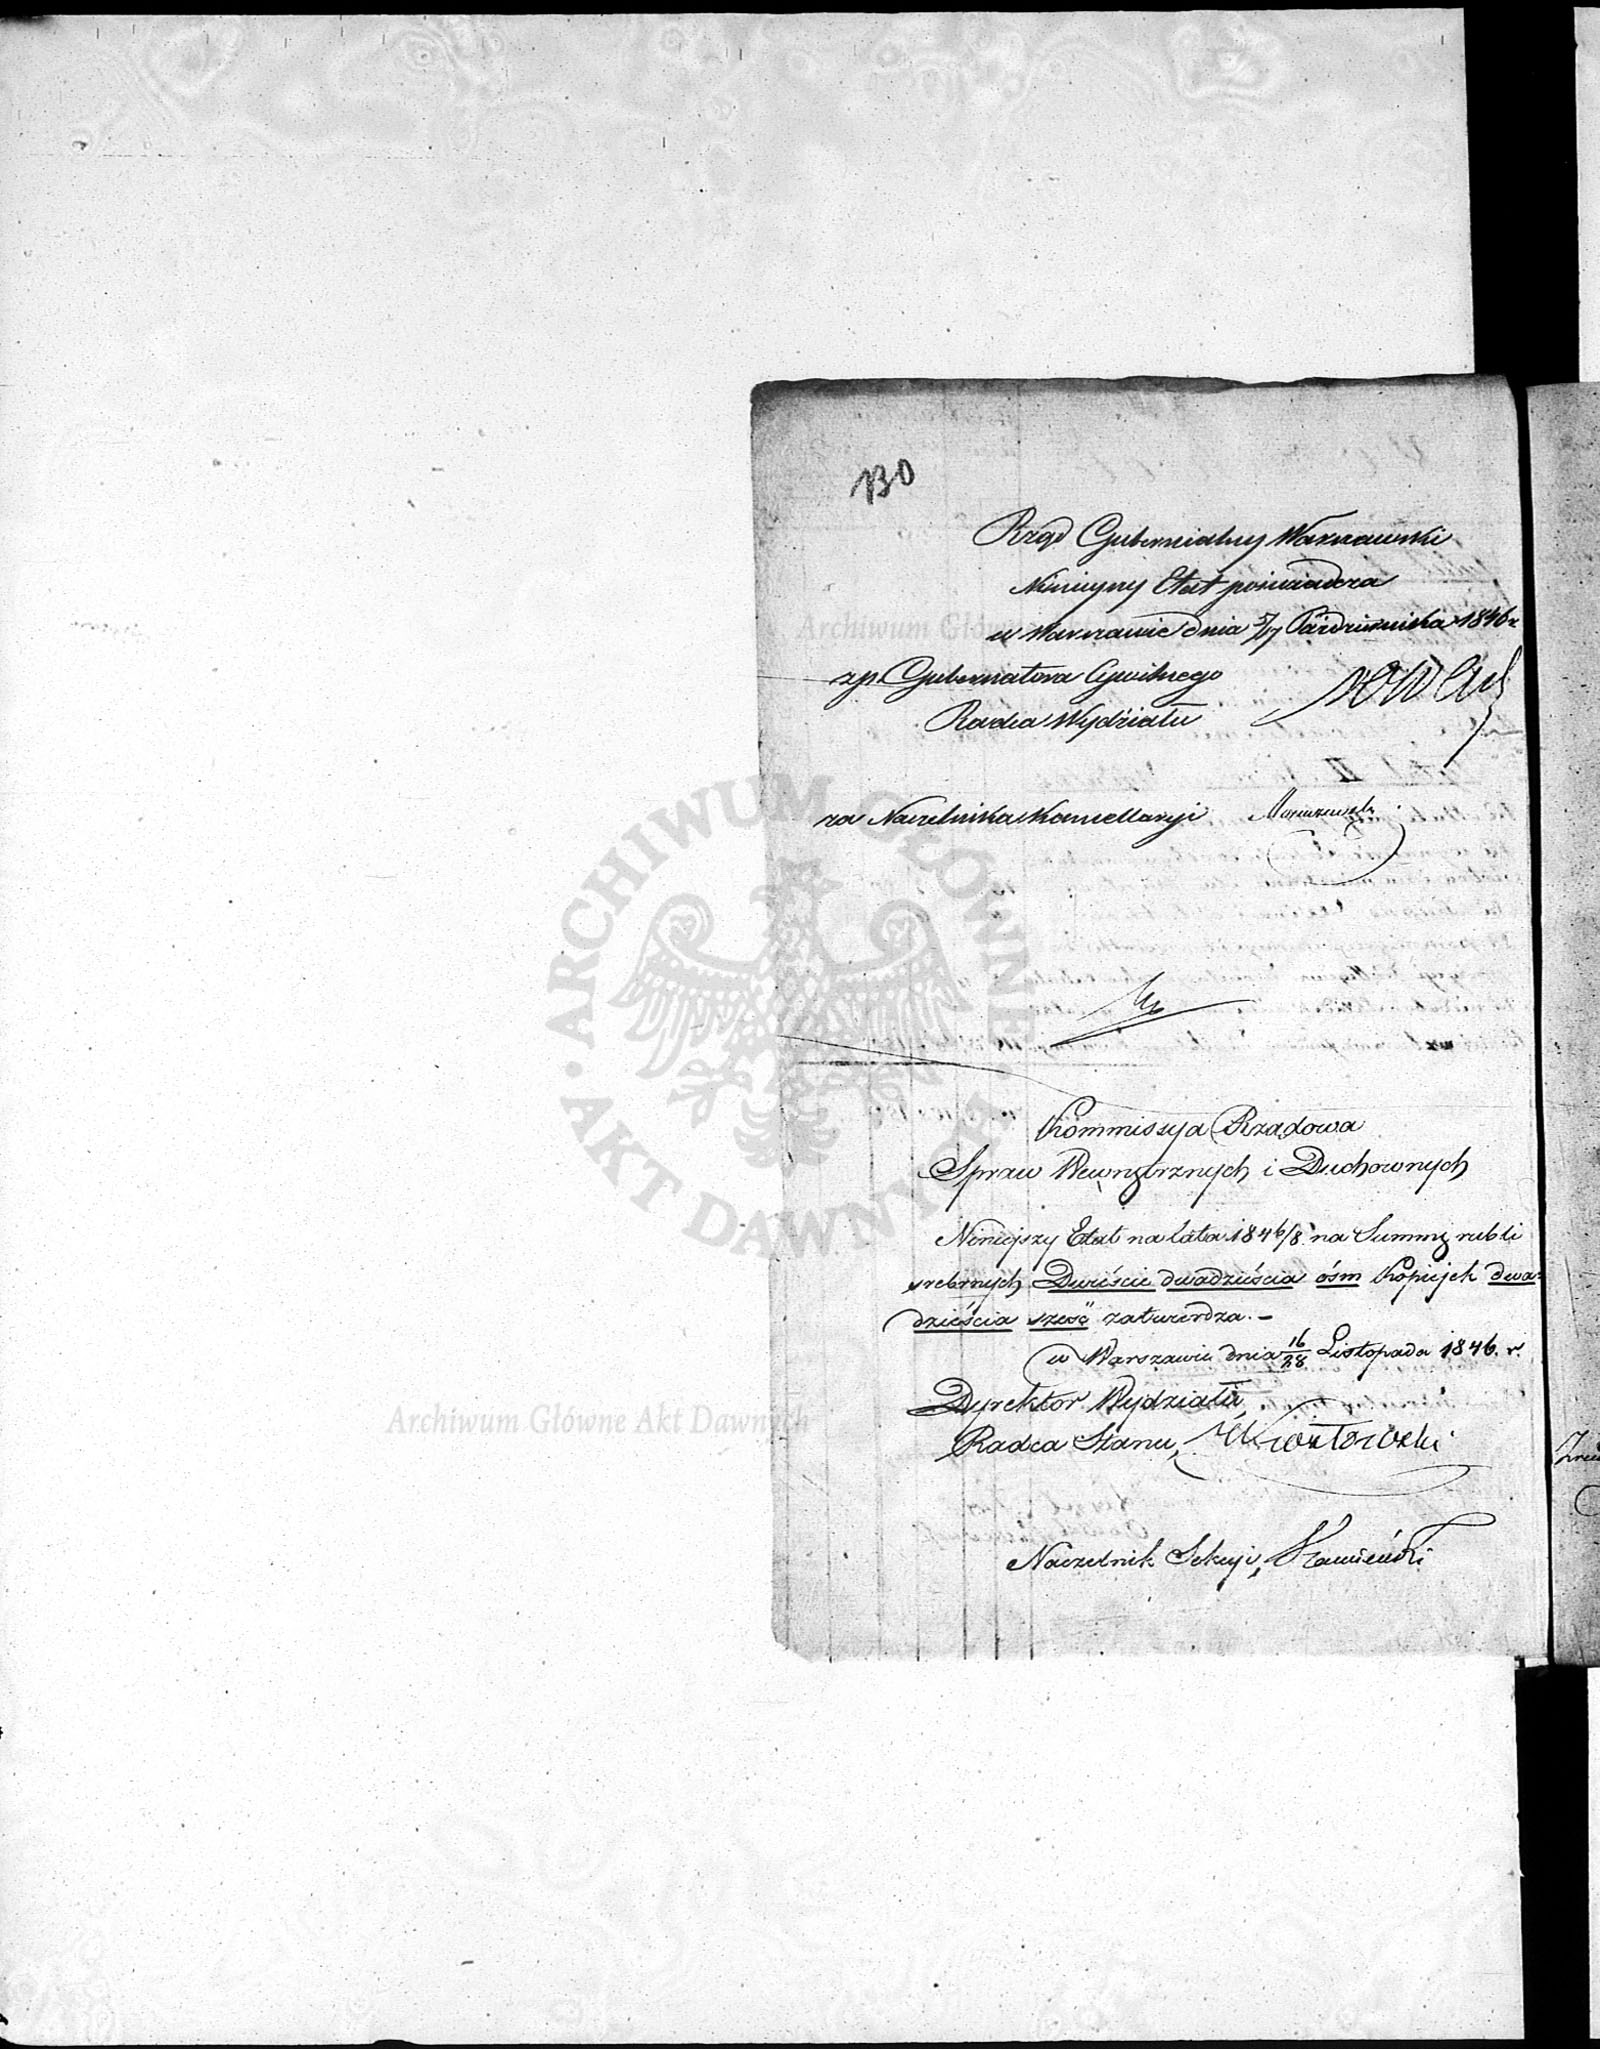 130
Rząd Gubernialny Warszawski
Niniejszy Etat poświadcza
w Warszawie dnia 5/17 Października 1846 r
zp. Gubernatora Cywilnego
Radca Wydziału
za Naczelnika Kancellaryi
Kommissya Rządowa
Spraw Wewnętrznych i Duchownych
Niniejszy Etat na lata 1846/8. na Summę rubli
srebrnych Dwieście dwadzieścia ośm Kopiejek dwa-
dzieścia sześć zatwierdza.-
w Warszawie dnia 16/28 Listopada 1846. r.
Dyrektor Wydziału,
Radca Stanu,
Naczelnik Sekcyi, Kamieński
ARCHIWUM GŁÓWNE AKT DAWNYCH
Archiwum Główne Akt Dawnych